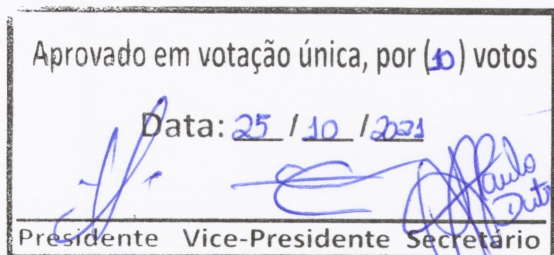 Aprovado em votação única, por (10) votos
Data: 25 / 10 / 2021
Paulo
Presidente Vice-Presidente Secretário